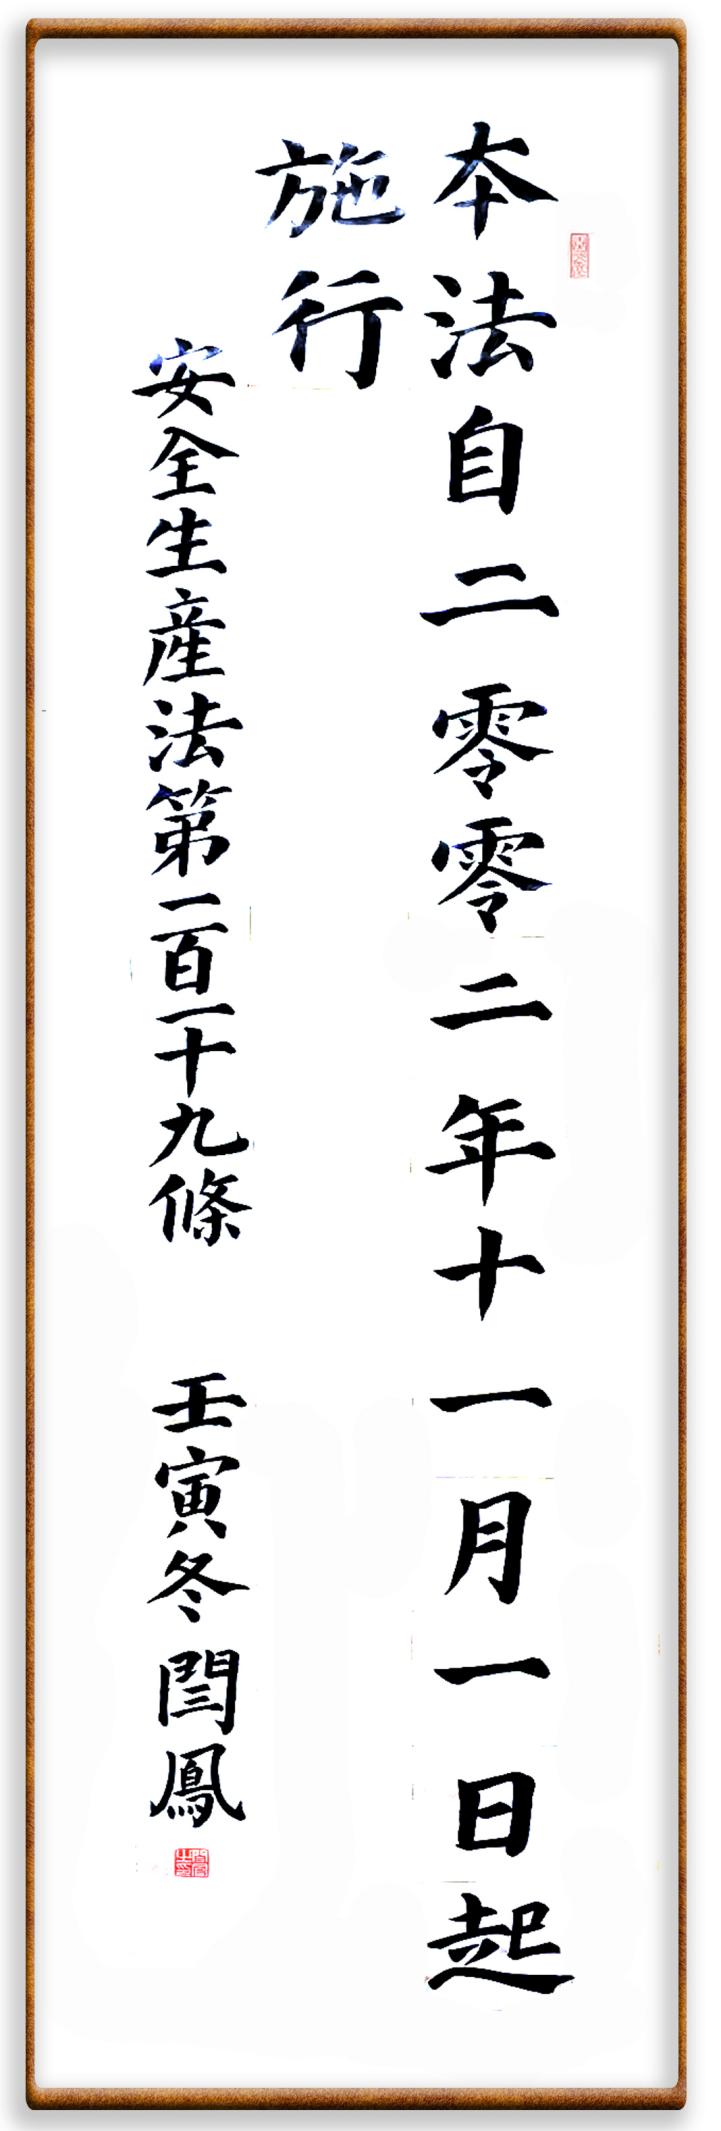 本法自二零零二年十一月一日起
施行
安全生產法第一百一十九條 壬寅冬閆鳳